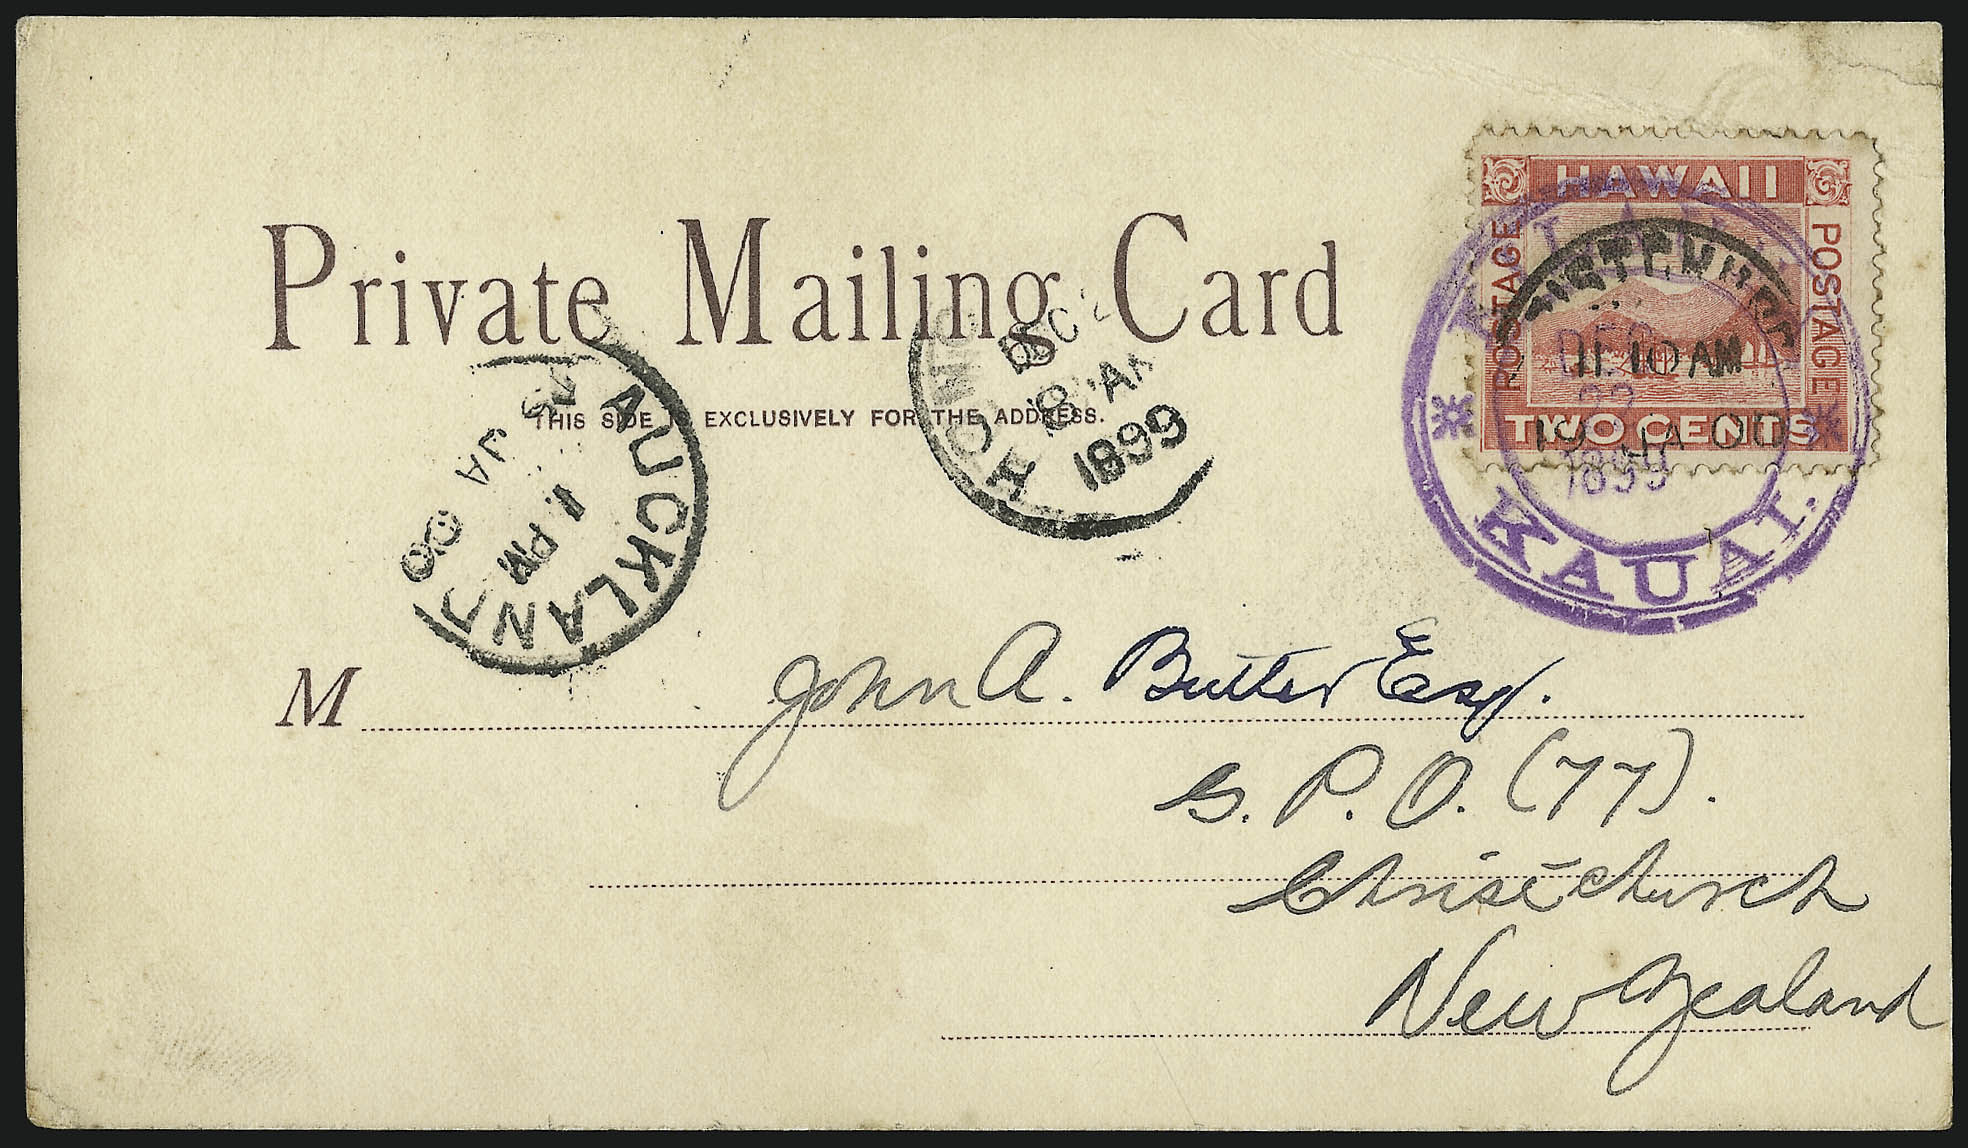 HAWAII
POSTAGE
POSTAGE
TWO CENTS
KAUAI.
DEC
1899
11 10 AM
19 JA 00
Private Mailing Card
THIS SIDE EXCLUSIVELY FOR THE ADDRESS.
HONO
DEC
8 AM
1899
AUCKLAND
JA 00
1. PM
M John A. Butter Esq.
G. P. O. (77).
Christchurch
New Zealand